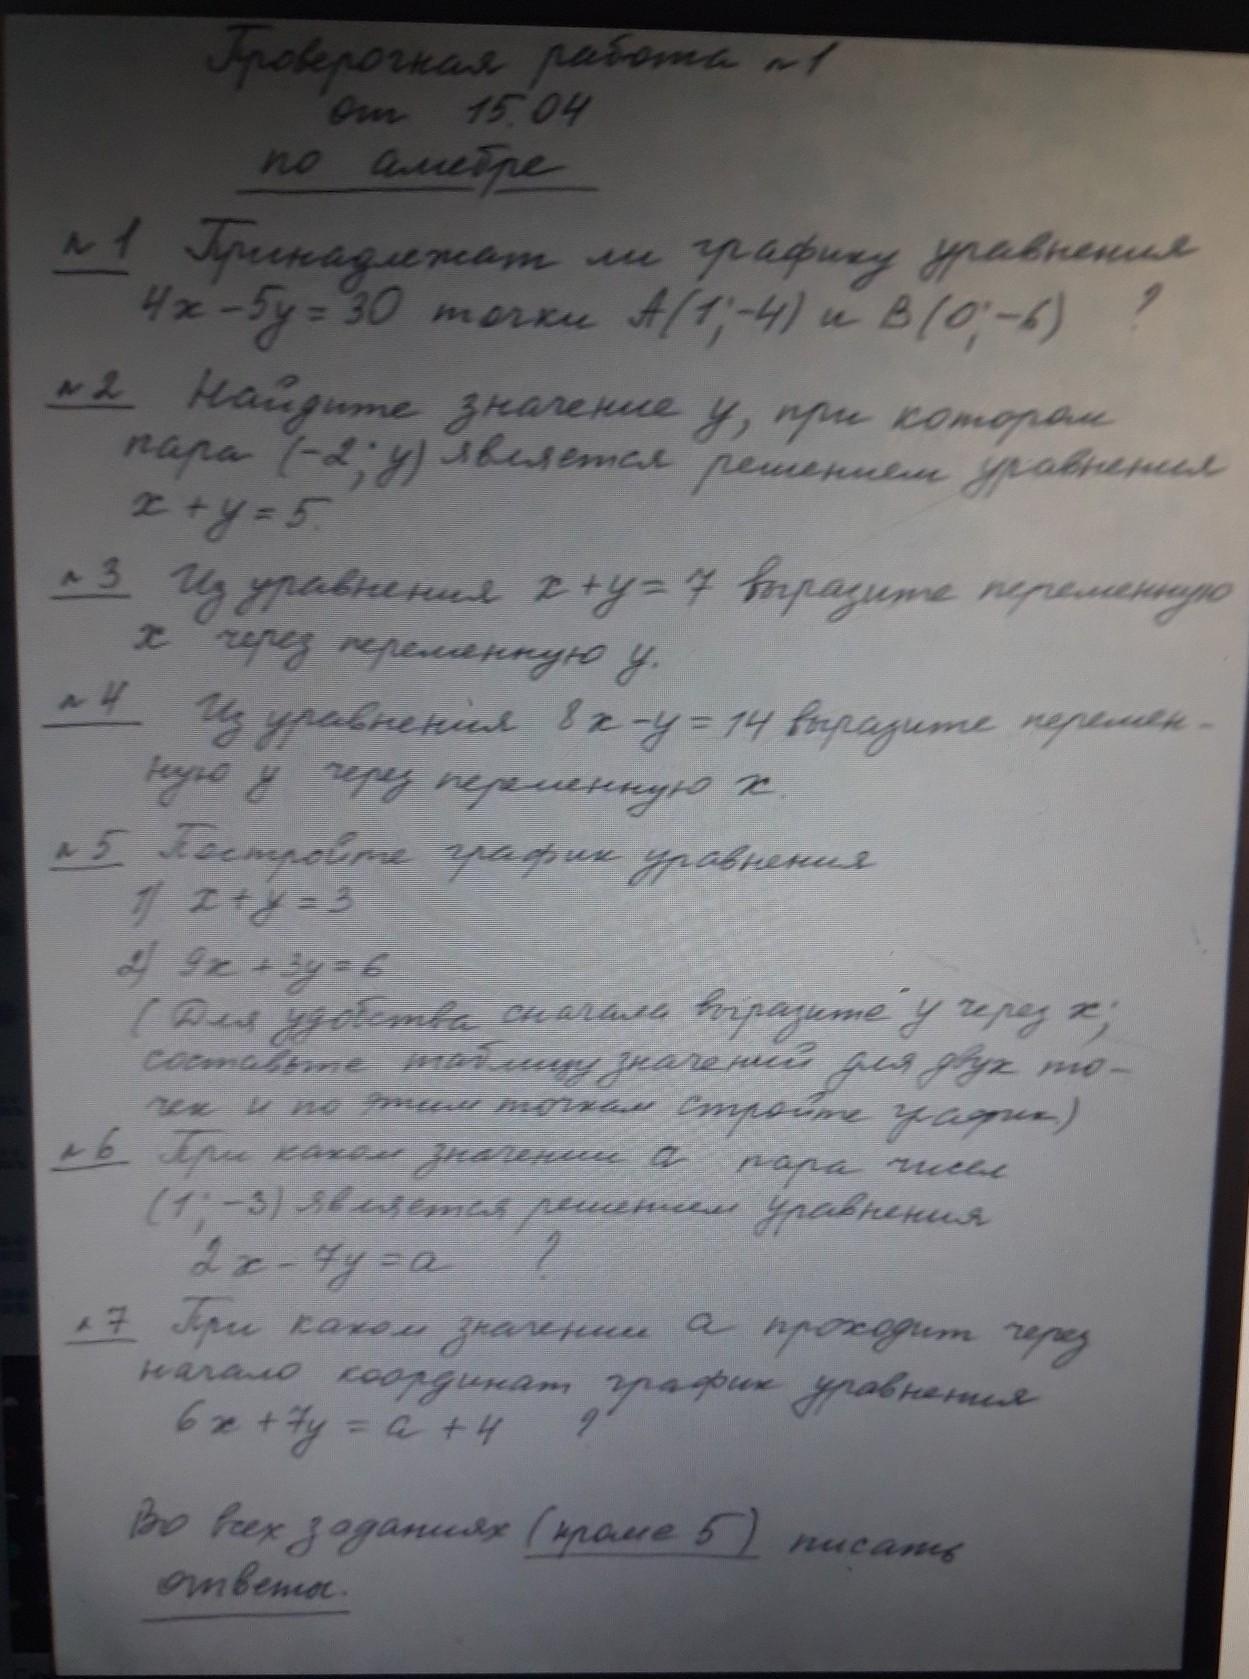 Проверочная работа №1
от 15.04
по алгебре
№1 Принадлежат ли графику уравнения
4x-5y=30 точки A(1;-4) и B(0;-6) ?
№2 Найдите значение y, при котором
пара (-2;y) является решением уравнения
x+y=5.
№3 Из уравнения x+y=7 выразите переменную
x через переменную y.
№4 Из уравнения 8x-y=14 выразите перемен-
ную y через переменную x.
№5 Постройте график уравнения
1) x+y=3
2) 9x+3y=6
(Для удобства сначала выразите y через x;
составьте таблицу значений для двух то-
чек и по этим точкам стройте график)
№6 При каком значении a пара чисел
(1;-3) является решением уравнения
2x-7y=a ?
№7 При каком значении a проходит через
начало координат график уравнения
6x+7y=a+4 ?
Во всех заданиях (кроме 5) писать
ответы.